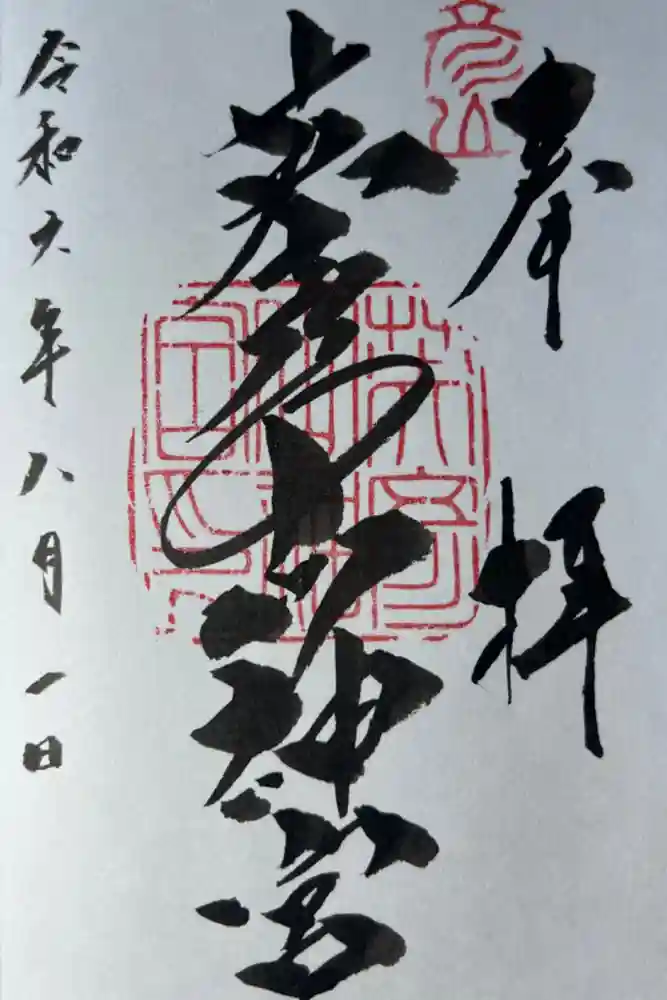 奉拝
英彦山神宮
令和六年八月一日